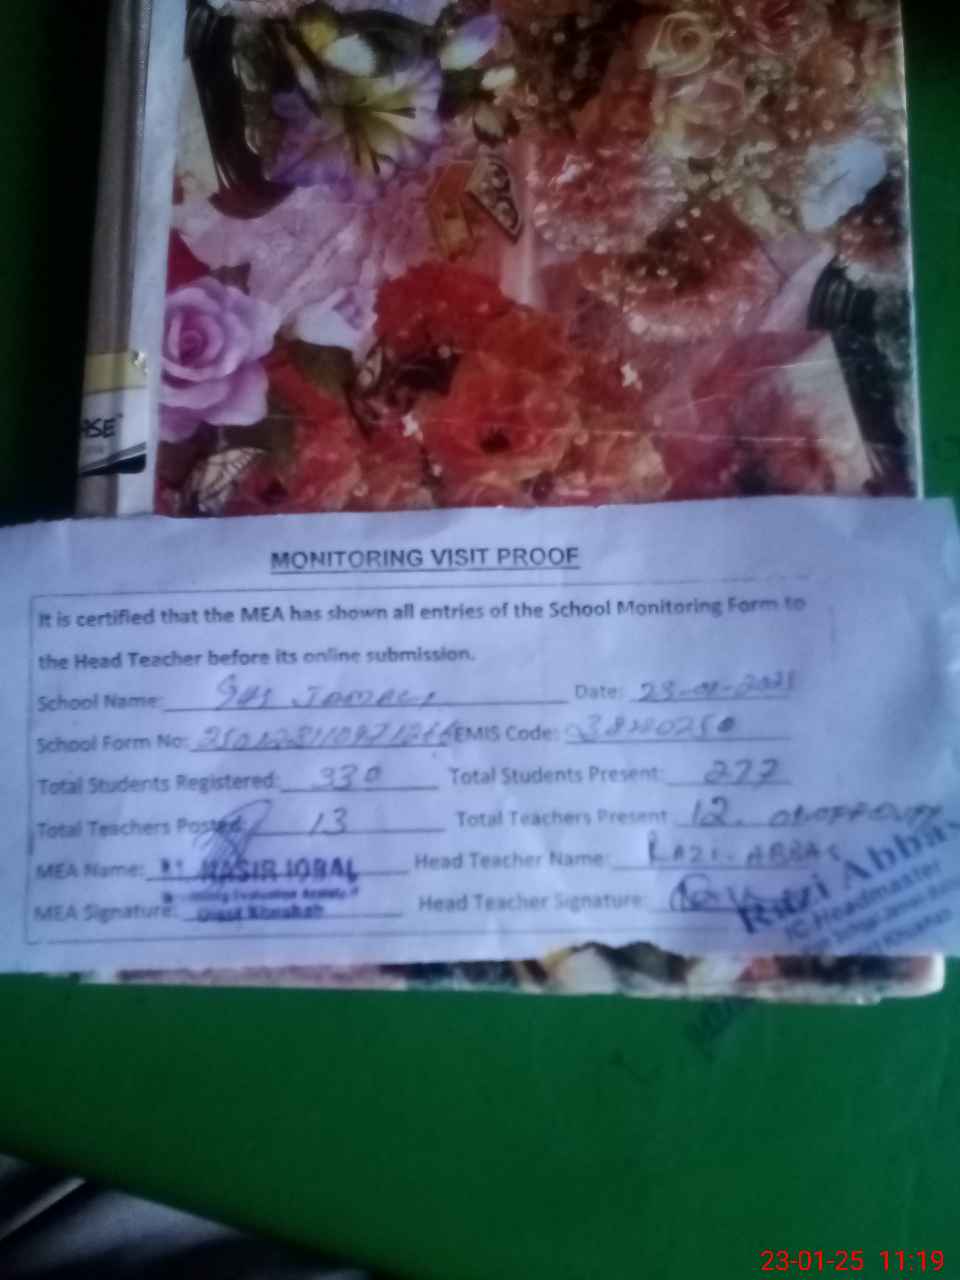 ASE
MONITORING VISIT PROOF
It is certified that the MEA has shown all entries of the School Monitoring Form to
the Head Teacher before its online submission.
School Name: GHS JAMALI Date: 23-01-2025
School Form No: EMIS Code:
Total Students Registered: 330 Total Students Present: 277
Total Teachers Posted: 13 Total Teachers Present 12.
MEA Name: NASIR IQBAL Head Teacher Name: RAZI-ABBAS
MEA Signature: Head Teacher Signature:
Monitoring Evaluation
Distt Khushab
Razi Abbas
Headmaster
23-01-25 11:19